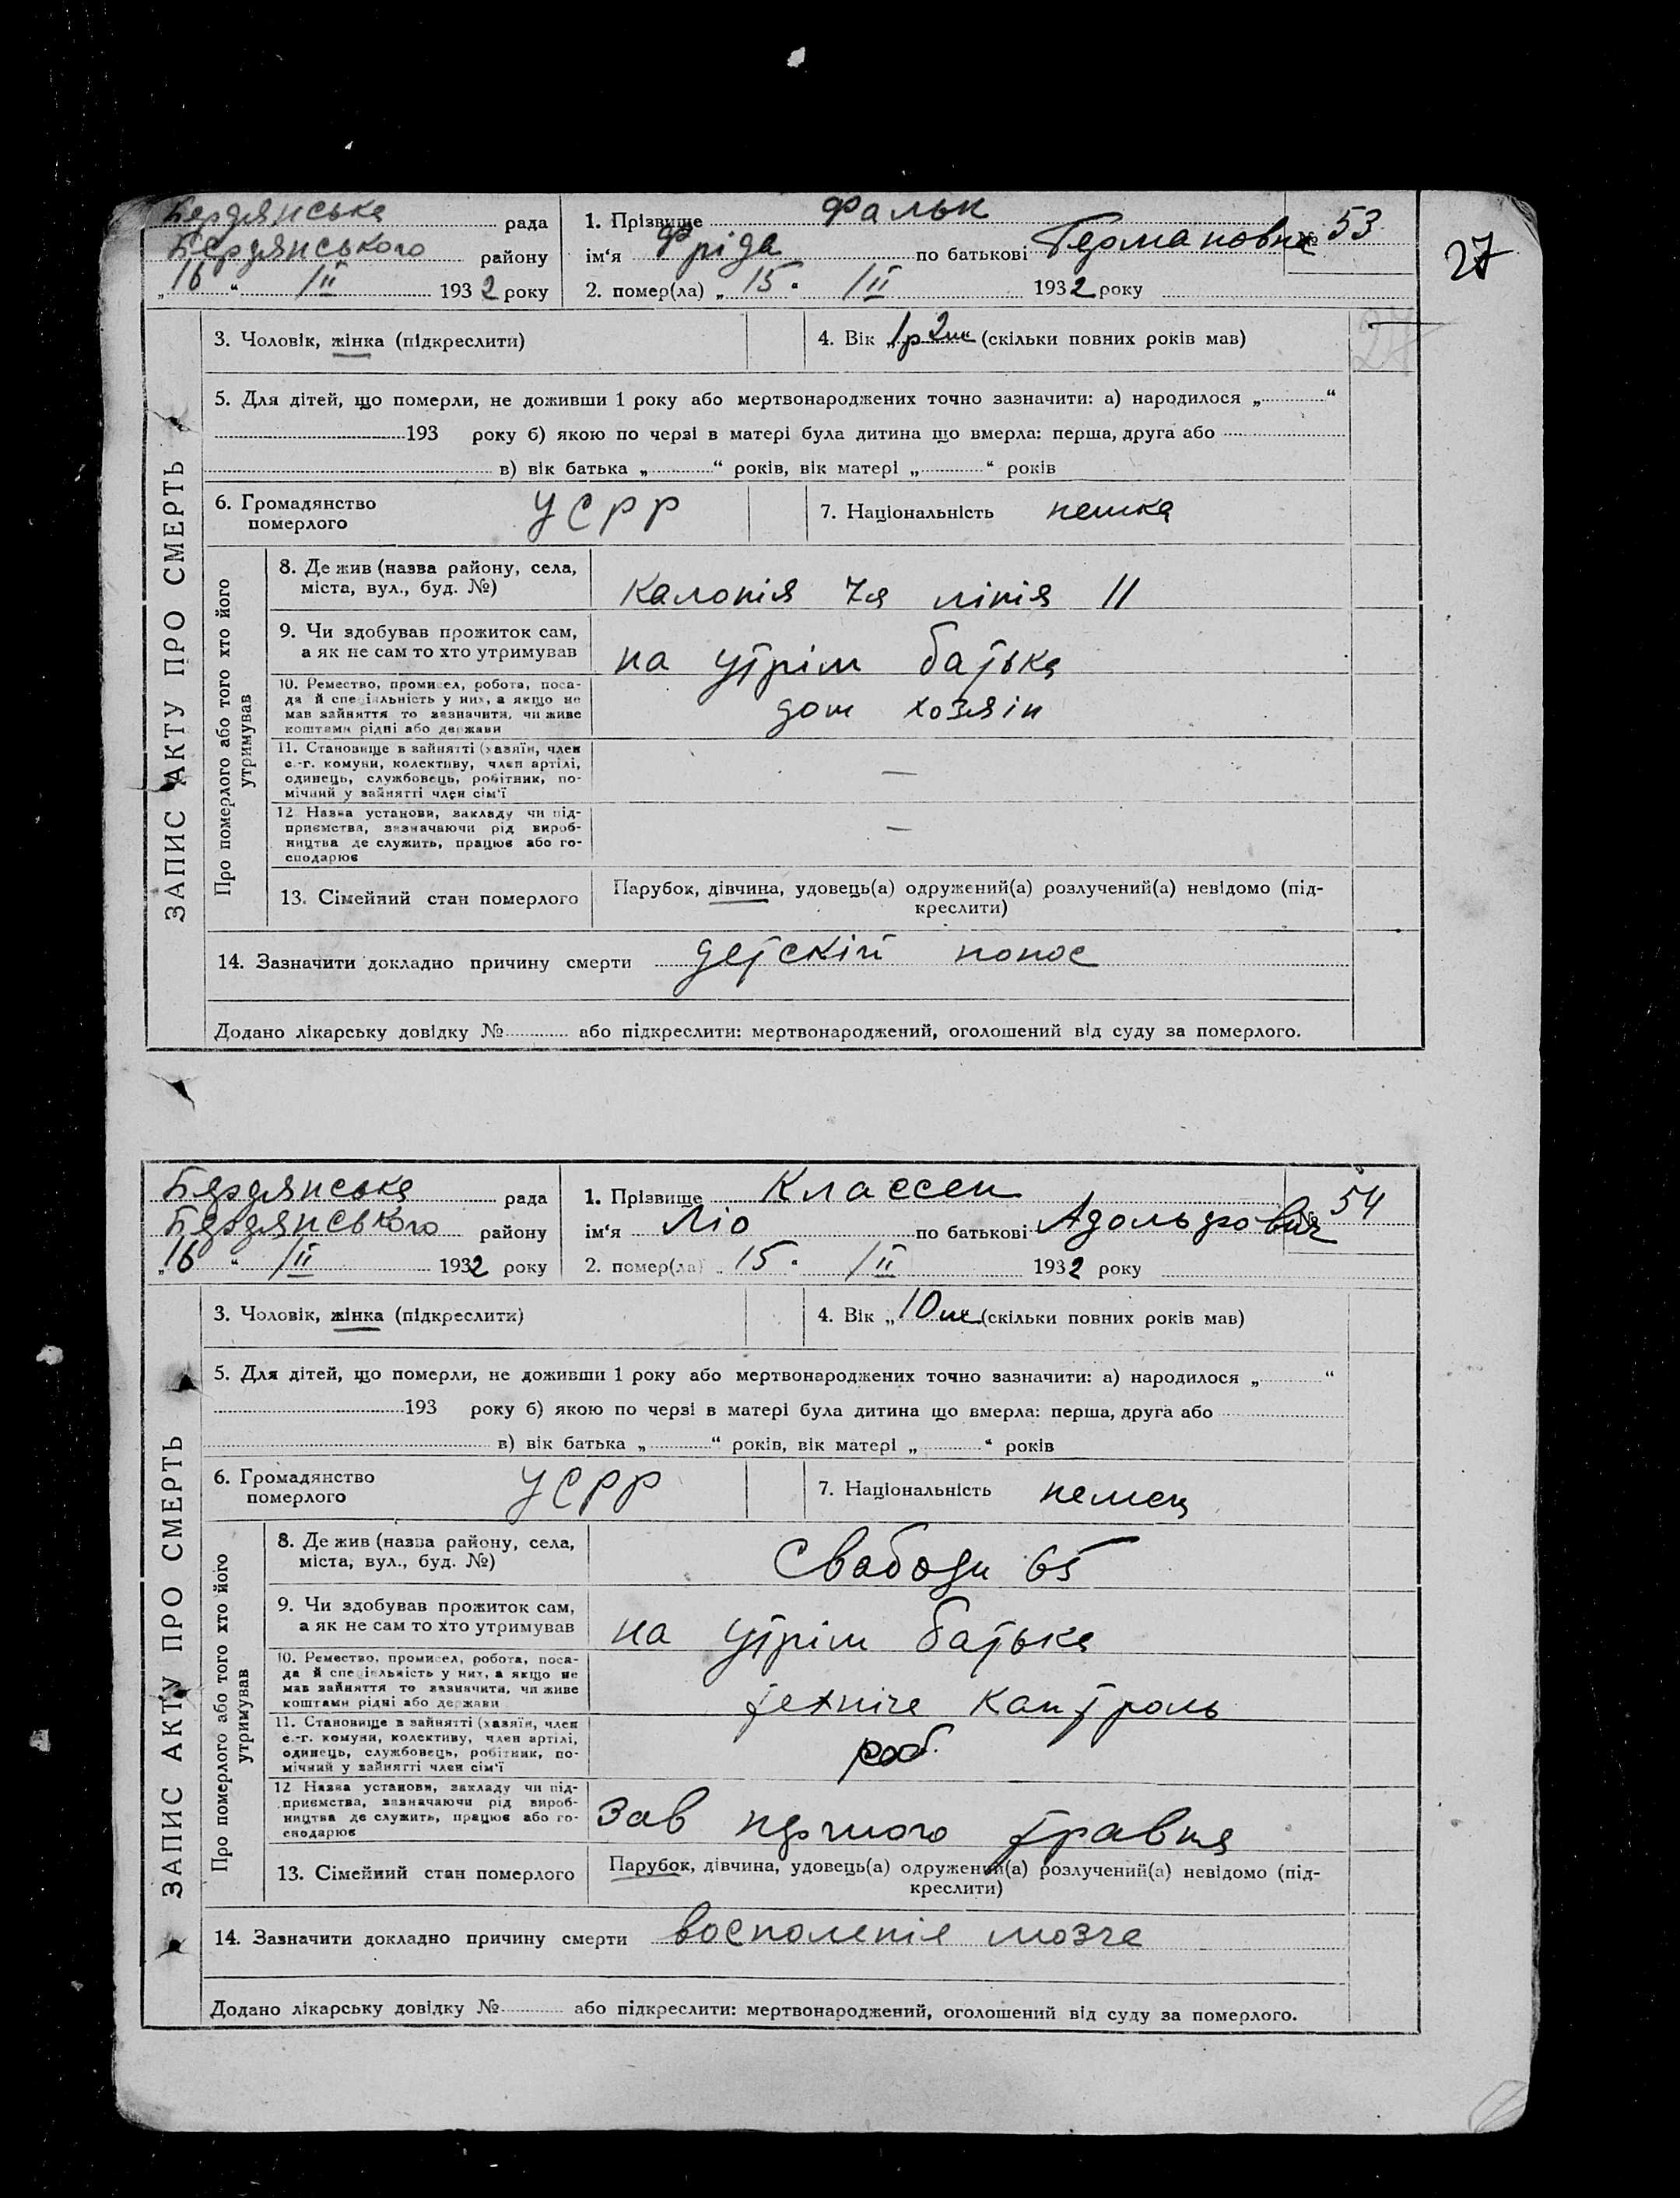 27
Бердянська рада 1. Прізвище Фальк № 53
Бердянського району ім‘я Фріда по батькові Германовна
„16“ /II 1932 року 2. помер(ла) „15“ /II 1932 року
27
3. Чоловік, жінка (підкреслити) 4. Вік „1р 2м (скільки повних років мав)
5. Для дітей, що померли, не доживши 1 року або мертвонароджених точно зазначити: а) народилося „ “
193 року б) якою по черзі в матері була дитина що вмерла: перша, друга або
в) вік батька „ “ років, вік матері „ “ років
6. Громадянство померлого УСРР 7. Національність немка
ЗАПИС АКТУ ПРО СМЕРТЬ
Про померлого або того хто його утримував
8. Де жив (назва району, села,
міста, вул., буд. №) Калонія 7я лінія 11
9. Чи здобував прожиток сам,
а як не сам то хто утримував на утрім батька
10. Ремество, промисел, робота, поса-
да й спеціальність у них, а якщо не
мав зайняття то зазначити, чи живе
коштами рідні або держави дом хозяін
11. Становище в зайнятті (хазяїн, член
с.-г. комуни, колективу, член артілі,
одинець, службовець, робітник, по-
мічний у зайнятті член сім‘ї —
12 Назва установи, закладу чи під-
приємства, зазначаючи рід вироб-
ництва де служить, працює або го-
сподарює —
13. Сімейний стан померлого Парубок, дівчина, удовець(а) одружений(а) розлучений(а) невідомо (під-
креслити)
14. Зазначити докладно причину смерти детскій понос
Додано лікарську довідку № або підкреслити: мертвонароджений, оголошений від суду за померлого.
Бердянська рада 1. Прізвище Классен 54
Бердянського району ім‘я Ліо по батькові Адольфович
„16“ /II 1932 року 2. помер(ла) „15“ /II 1932 року
3. Чоловік, жінка (підкреслити) 4. Вік „10м (скільки повних років мав)
5. Для дітей, що померли, не доживши 1 року або мертвонароджених точно зазначити: а) народилося „ “
193 року б) якою по черзі в матері була дитина що вмерла: перша, друга або
в) вік батька „ “ років, вік матері „ “ років
6. Громадянство померлого УСРР 7. Національність немец
ЗАПИС АКТУ ПРО СМЕРТЬ
Про померлого або того хто його утримував
8. Де жив (назва району, села,
міста, вул., буд. №) Свободи 65
9. Чи здобував прожиток сам,
а як не сам то хто утримував на утрім батька
10. Ремество, промисел, робота, поса-
да й спеціальність у них, а якщо не
мав зайняття то зазначити, чи живе
коштами рідні або держави контроль
11. Становище в зайнятті (хазяїн, член
с.-г. комуни, колективу, член артілі,
одинець, службовець, робітник, по-
мічний у зайнятті член сім‘ї роб.
12 Назва установи, закладу чи під-
приємства, зазначаючи рід вироб-
ництва де служить, працює або го-
сподарює Зав першого травня
13. Сімейний стан померлого Парубок, дівчина, удовець(а) одружений(а) розлучений(а) невідомо (під-
креслити)
14. Зазначити докладно причину смерти восполеніе мозга
Додано лікарську довідку № або підкреслити: мертвонароджений, оголошений від суду за померлого.